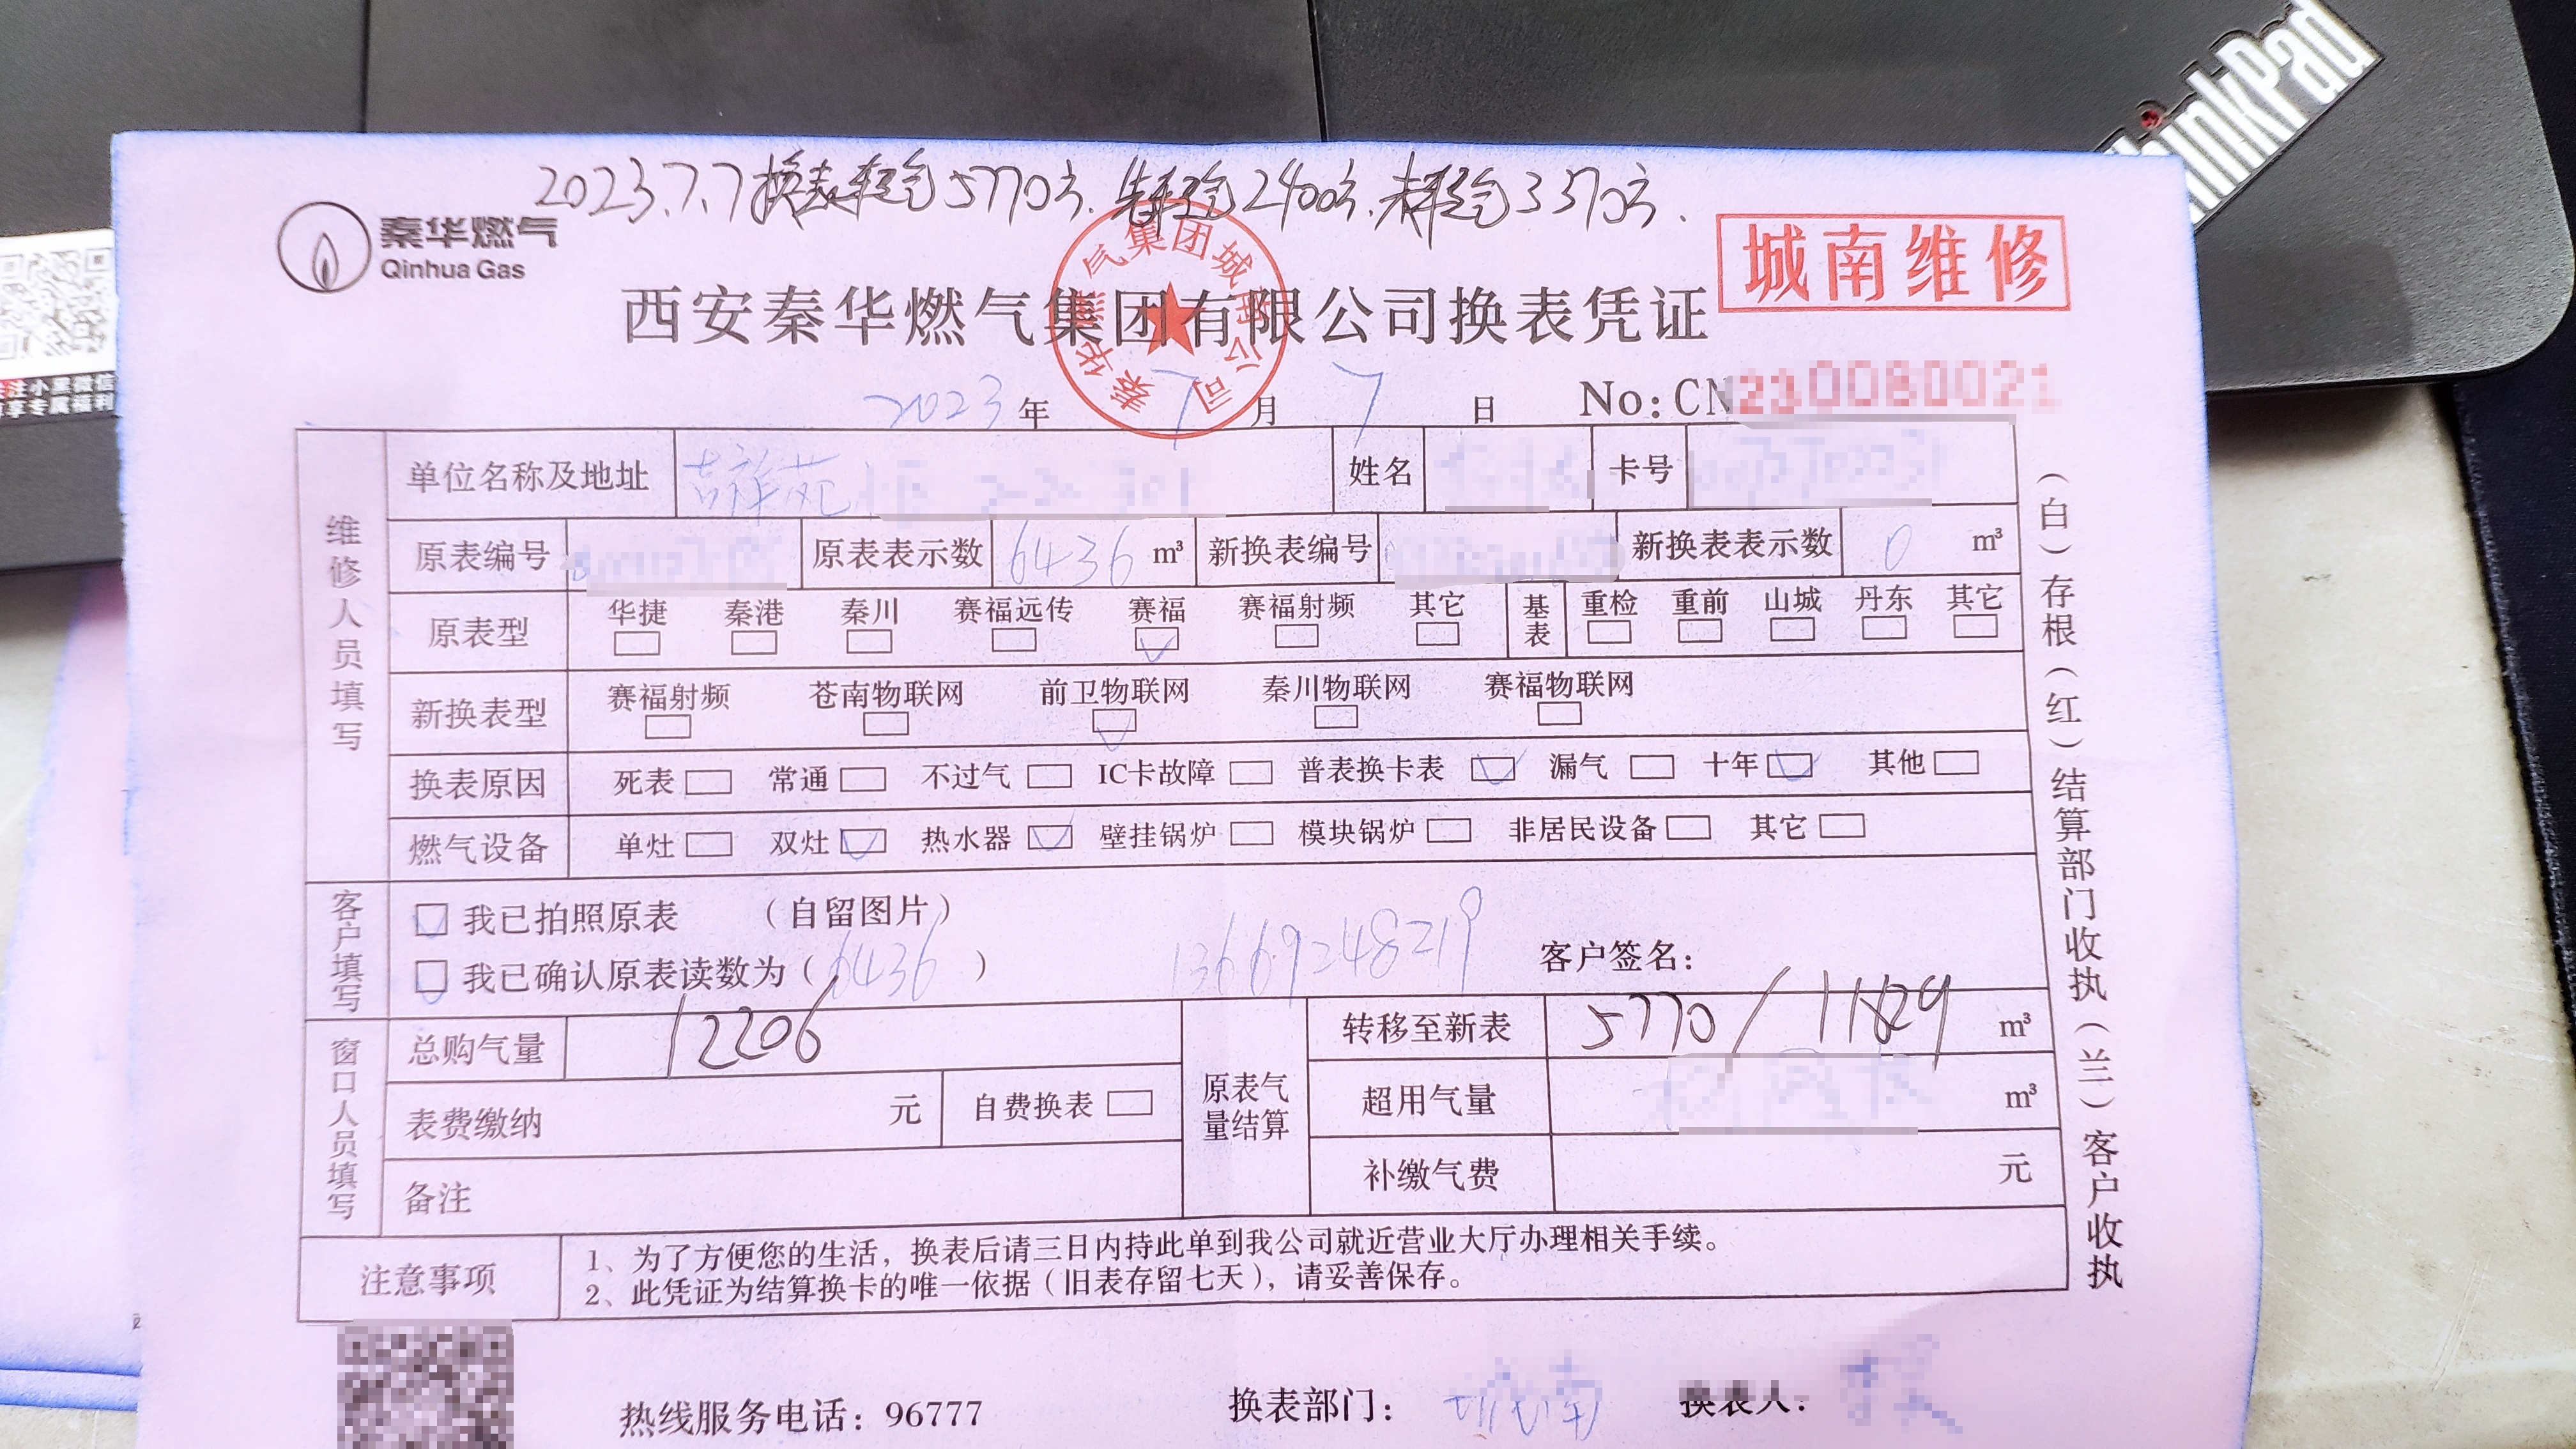 ThinkPad
2023.7.7换表转气5770方.先转气2400方.未转气3370方.
秦华燃气
Qinhua Gas
城南维修
西安秦华燃气集团有限公司换表凭证
秦华燃气集团城南公司
2023年7月7日 No:CN230080021
关注小黑微信
享专属福利
维修人员填写
单位名称及地址 吉祥苑 姓名 卡号
原表编号 原表表示数 6436 m³ 新换表编号 新换表表示数 0 m³
原表型 华捷 秦港 秦川 赛福远传 赛福 赛福射频 其它 基表 重检 重前 山城 丹东 其它
新换表型 赛福射频 苍南物联网 前卫物联网 秦川物联网 赛福物联网
换表原因 死表 常通 不过气 IC卡故障 普表换卡表 漏气 十年 其他
燃气设备 单灶 双灶 热水器 壁挂锅炉 模块锅炉 非居民设备 其它
客户填写
我已拍照原表 （自留图片）
我已确认原表读数为（6436） 13669248219 客户签名：
窗口人员填写
总购气量 12206
表费缴纳 元 自费换表
备注
原表气量结算
转移至新表 5770/ m³
超用气量 m³
补缴气费 元
注意事项
1、为了方便您的生活，换表后请三日内持此单到我公司就近营业大厅办理相关手续。
2、此凭证为结算换卡的唯一依据（旧表存留七天），请妥善保存。
（白）存根（红）结算部门收执（兰）客户收执
热线服务电话：96777 换表部门：城南 换表人：